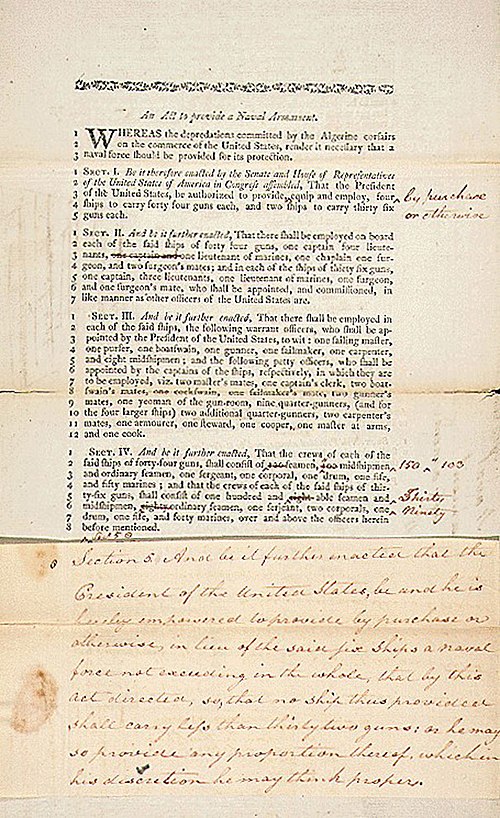 An Act to provide a Naval Armament.
1 WHEREAS the depredations committed by the Algerine corsairs
2 on the commerce of the United States, render it necessary that a
3 naval force should be provided for its protection.
1 SECT. I. Be it therefore enacted by the Senate and House of Representatives
2 of the United States of America in Congress assembled, That the President
3 of the United States, be authorized to provide, equip and employ, four by purchase
4 ships to carry forty four guns each, and two ships to carry thirty six or otherwise
5 guns each.
1 SECT. II. And be it further enacted, That there shall be employed on board
2 each of the said ships of forty four guns, one captain four lieute-
3 nants, one captain and one lieutenant of marines, one chaplain one sur-
4 geon, and two surgeon's mates; and in each of the ships of thirty six guns,
5 one captain, three lieutenants, one lieutenant of marines, one surgeon,
6 and one surgeon's mate, who shall be appointed, and commissioned, in
7 like manner as other officers of the United States are.
1 SECT. III. And be it further enacted, That there shall be employed in
2 each of the said ships, the following warrant officers, who shall be ap-
3 pointed by the President of the United States, to wit: one sailing master,
4 one purser, one boatswain, one gunner, one sailmaker, one carpenter,
5 and eight midshipmen; and the following petty officers, who shall be
6 appointed by the captains of the ships, respectively, in which they are
7 to be employed, viz. two master's mates, one captain's clerk, two boat-
8 swain's mates, one cockswain, one sailmaker's mate, two gunner's
9 mates, one yeoman of the gun-room, nine quarter-gunners, (and for
10 the four larger ships) two additional quarter-gunners, two carpenter's
11 mates, one armourer, one steward, one cooper, one master at arms,
12 and one cook.
1 SECT. IV. And be it further enacted, That the crews of each of the
2 said ships of forty-four guns, shall consist of seamen, midshipmen, 150 103
3 and ordinary seamen, one sergeant, one corporal, one drum, one fife,
4 and fifty marines; and that the crews of each of the said ships of thir-
5 ty-six guns, shall consist of one hundred and eight able seamen and Thirty
6 midshipmen, eighty ordinary seamen, one serjeant, two corporals, one Ninety
7 drum, one fife, and forty marines, over and above the officers herein
8 before mentioned.
Section 5. And be it further enacted that the
President of the United States, be and he is
hereby empowered to provide by purchase or
otherwise, in lieu of the said six Ships a naval
force not exceeding in the whole, that by this
act directed, so, that no ship thus provided
shall carry less than thirty two guns; or he may
so provide any proportion thereof, which in
his discretion he may think proper.